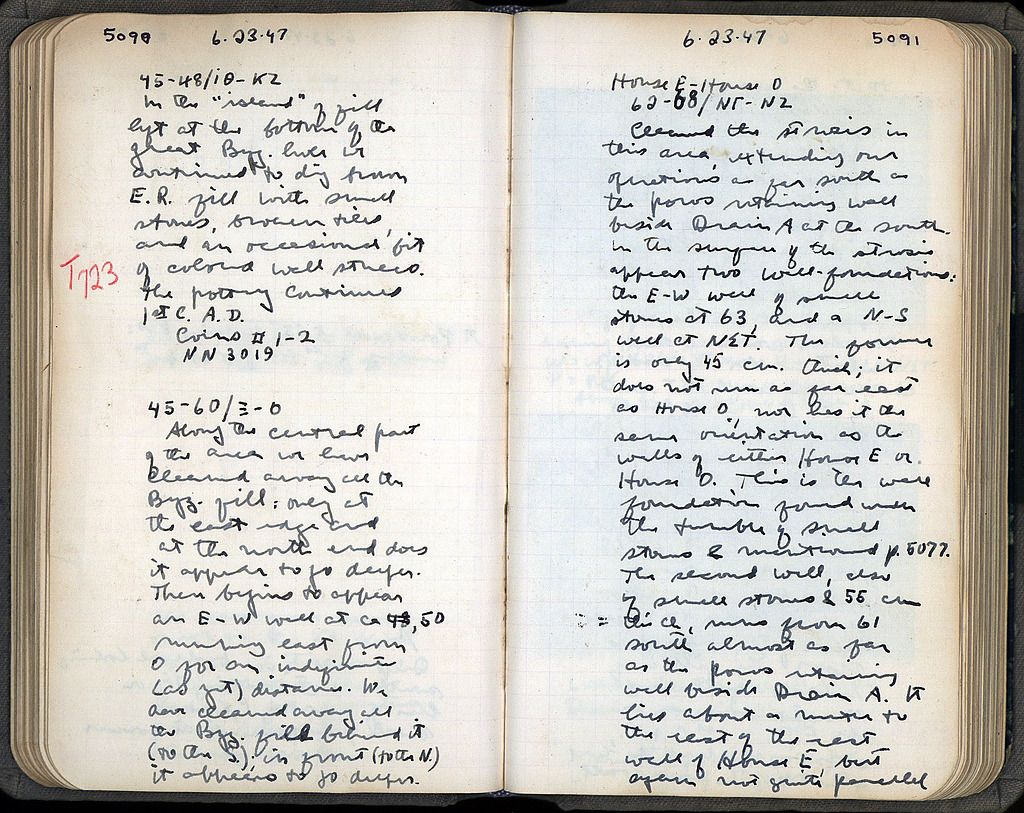 5090 6.23.47
45-48/ΙΘ-ΚΖ
In the "island" of fill
left at the bottom of the
great Byz. hole we
continued to dig down
E.R. fill with small
stones, broken tiles,
and an occasional bit
of colored wall stucco.
T723
The pottery continues
1st C. A.D.
Coins # 1-2
NN 3019
45-60/Ξ-Ο
Along the central part
of the area we have
cleared away all the
Byz. fill: only at
the east edge and
at the north end does
it appear to go deeper.
There begins to appear
an E-W wall at ca 48, 50
running east from
O for an indefinite
(as yet) distance. We
have cleared away all
the Byz. fill behind it
(to the S.); in front (to the N.)
it appears to go deeper.
6.23.47 5091
House E-House O
62-68/ΝΓ-ΝΖ
Cleaned the strosis in
this area, extending our
operations as far south as
the poros retaining wall
beside Drain A at the south.
In the surface of the strosis
appear two wall-foundations:
the E-W wall of small
stones at 63, and a N-S
wall at ΝΣΤ. The former
is only 45 cm. thick; it
does not run as far east
as House O, nor has it the
same orientation as the
walls of either House E or
House O. This is the wall
foundation found under
the tumble of small
stones & mentioned p. 5077.
The second wall, also
of small stones & 55 cm
thick, runs from 61
south almost as far
as the poros retaining
wall beside Drain A. It
lies about a meter to
the east of the east
wall of House E, but
again not quite parallel